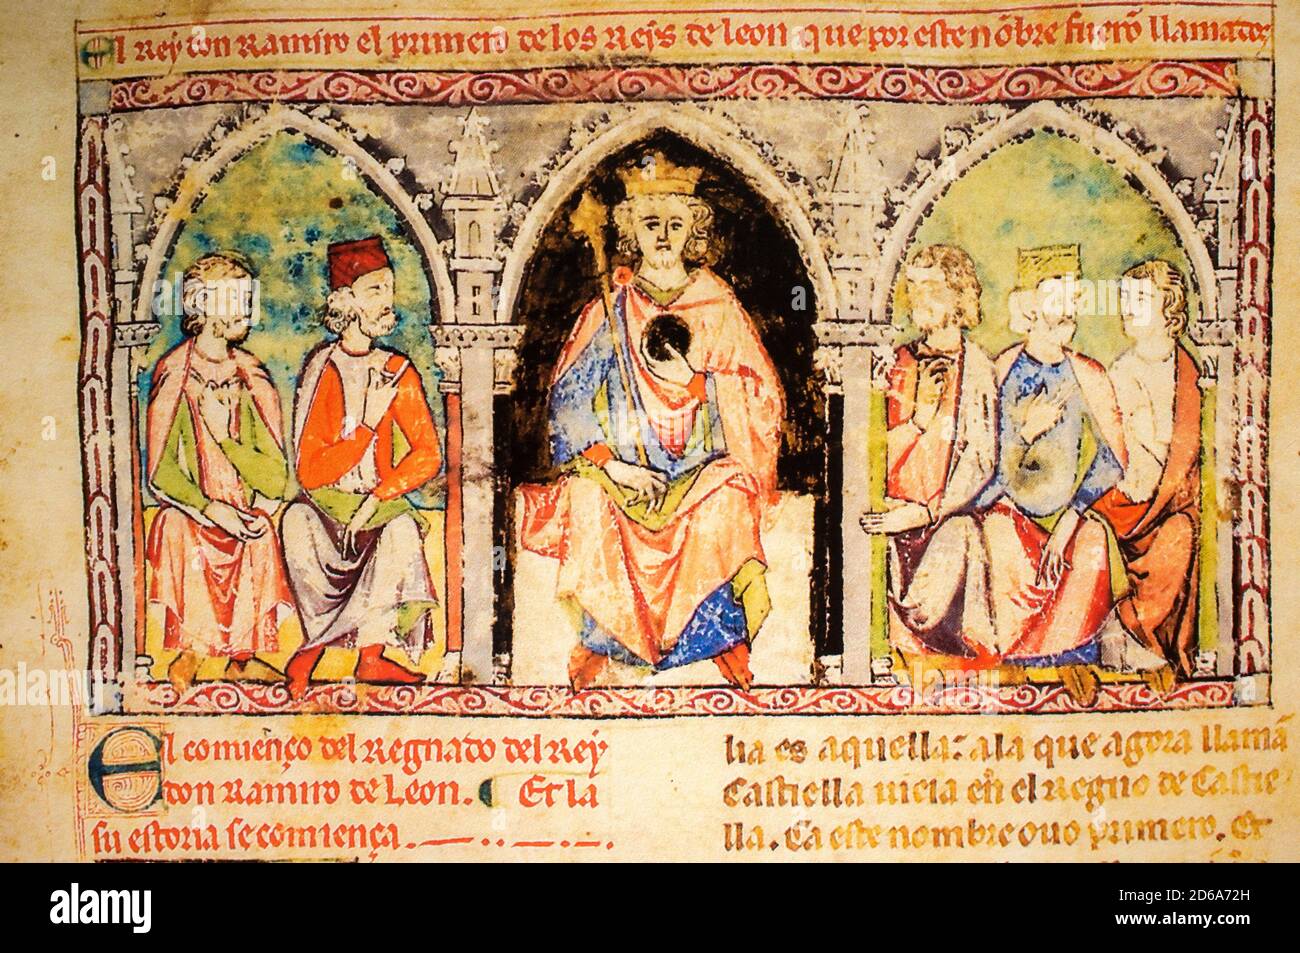 El Rey don Ramiro el primero de los Reys de leon que por este nõbre fuerõ llamados
El comienço del Regnado del Rey
don Ramiro de Leon. Et la
su estoria se comiença.
lla es aquella: a la que agora llamã
Castiella uieia en el Regno de Castie
lla. Ca este nombre ouo primero. Et
alamy
a
a
a
a
alamy
Image ID: 2D6A72H
www.alamy.com